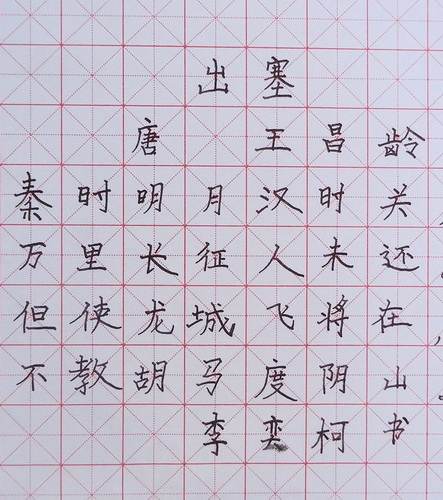 出塞
唐 王昌龄
秦时明月汉时关，
万里长征人未还。
但使龙城飞将在，
不教胡马度阴山。
李奕柯书